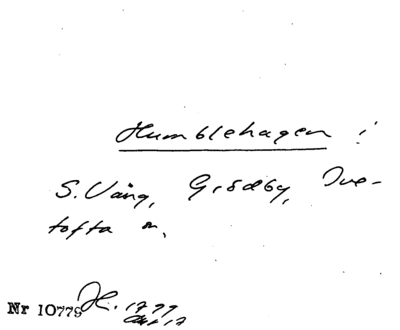 Humblehagen i
S. Vång, Grödby, Tve-
tofta n.
Nr 10779 H. 1799
Akt 17